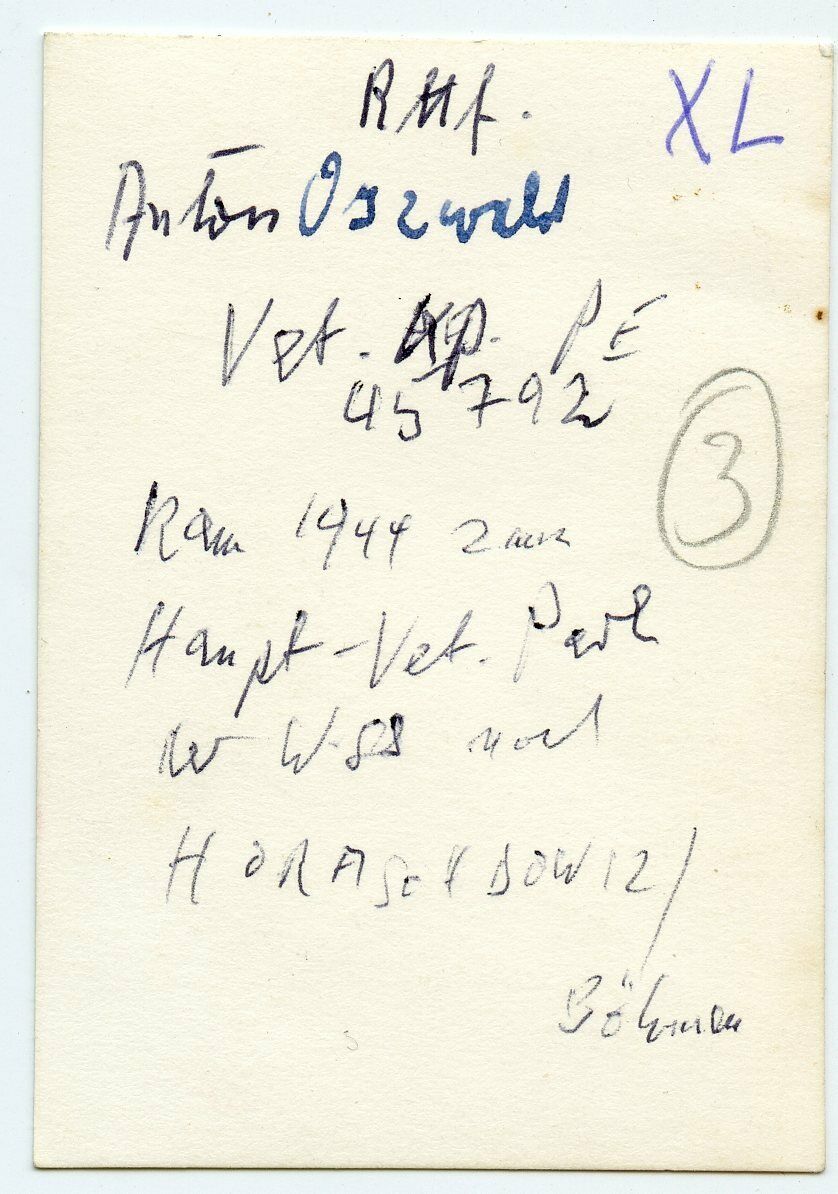 Rttf. XL
Anton Oszwald
Vet. Kp. PE
45 792
3
Kam 1944 zum
Haupt-Vet. Park
der W-SS nach
HORASCHDOWIZ/
Böhmen